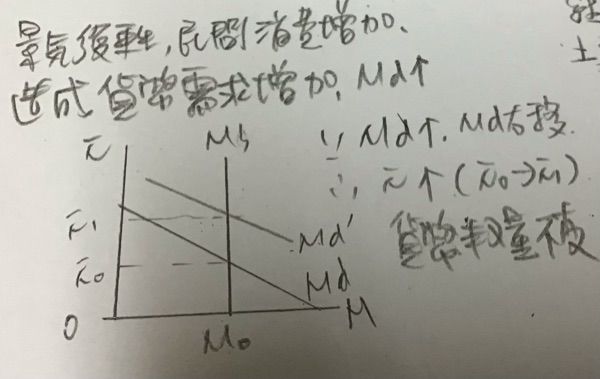 景氣復甦,民間消費增加、
造成貨幣需求增加,Md↑
∵Md↑,Md右移.
∴i↑(i0→i1)
貨幣數量不變
i
Ms
i1
i0
Md'
Md
0
M0
M